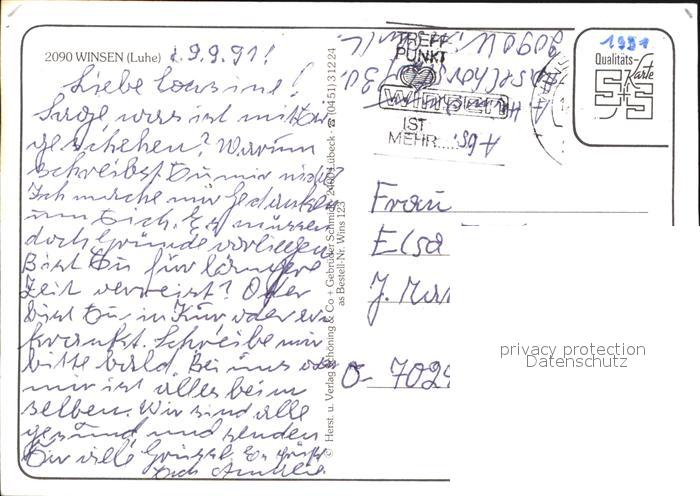 2090 WINSEN (Luhe) 9.9.91!
Liebe Cousine!
Sage was ist mit Dir
geschehen? Warum
schreibst Du mir nicht?
Ich mache mir Gedanken
um Dich. Es müssen
doch Gründe vorliegen
Bist Du für längere
Zeit verreist? Oder
bist Du in Kur oder
krank. Schreibe mir
bitte bald. Bei uns
mir ist alles beim
selben. Wir sind alle
gesund und senden
Dir viele Grüsse. Es grüßt
Dich
© Herst. u. Verlag Schöning & Co + Gebrüder Schmidt, 2400 Lübeck · ☎ (0451) 31224
as Bestell-Nr. Wins 123
TREFF
PUNKT
Winsen
IST
MEHR....
Abs.:
1991
Qualitäts-
Karte
S+S
Frau
Elsa
J.
O- 702
privacy protection
Datenschutz